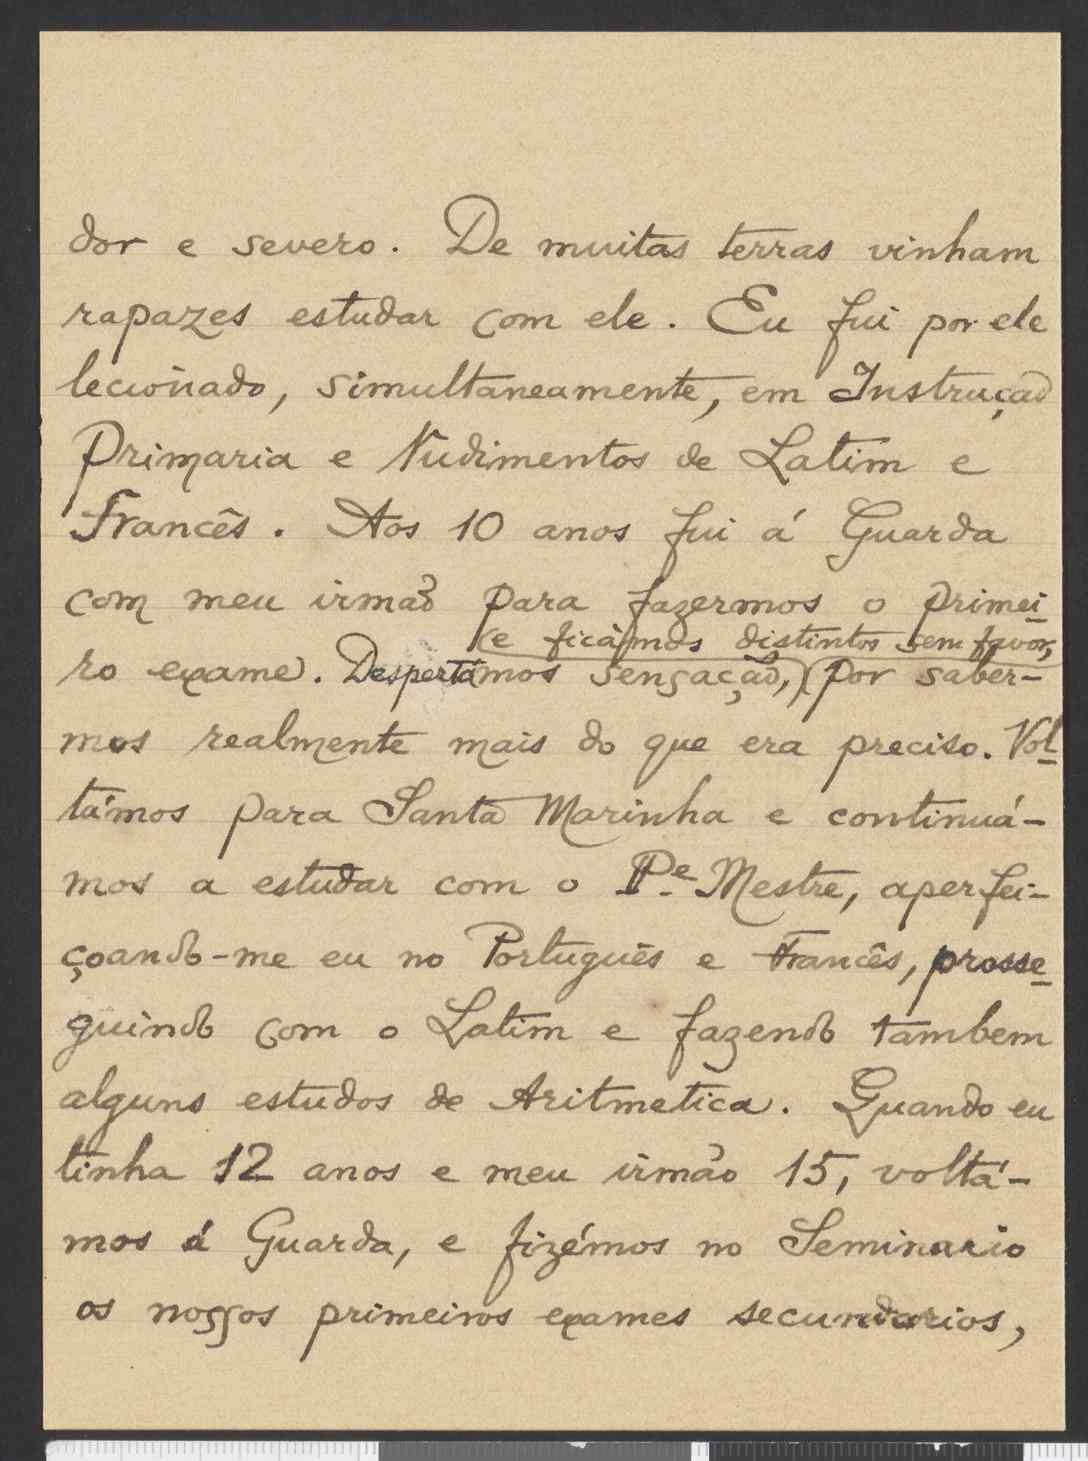 dor e severo. De muitas terras vinham
rapazes estudar com ele. Eu fui por ele
lecionado, simultaneamente, em Instrução
Primaria e Rudimentos de Latim e
Francês. Aos 10 anos fui á Guarda
com meu irmão para fazermos o primei
e ficámos distintos sem favor,
ro exame. Despertámos sensação, por saber-
mos realmente mais do que era preciso. Vol
támos para Santa Marinha e continuá-
mos a estudar com o Pe. Mestre, aperfei-
çoando-me eu no Português e Francês, prosse
guindo com o Latim e fazendo tambem
alguns estudos de Aritmetica. Quando eu
tinha 12 anos e meu irmão 15, voltá-
mos á Guarda, e fizémos no Seminario
os nossos primeiros exames secundarios,